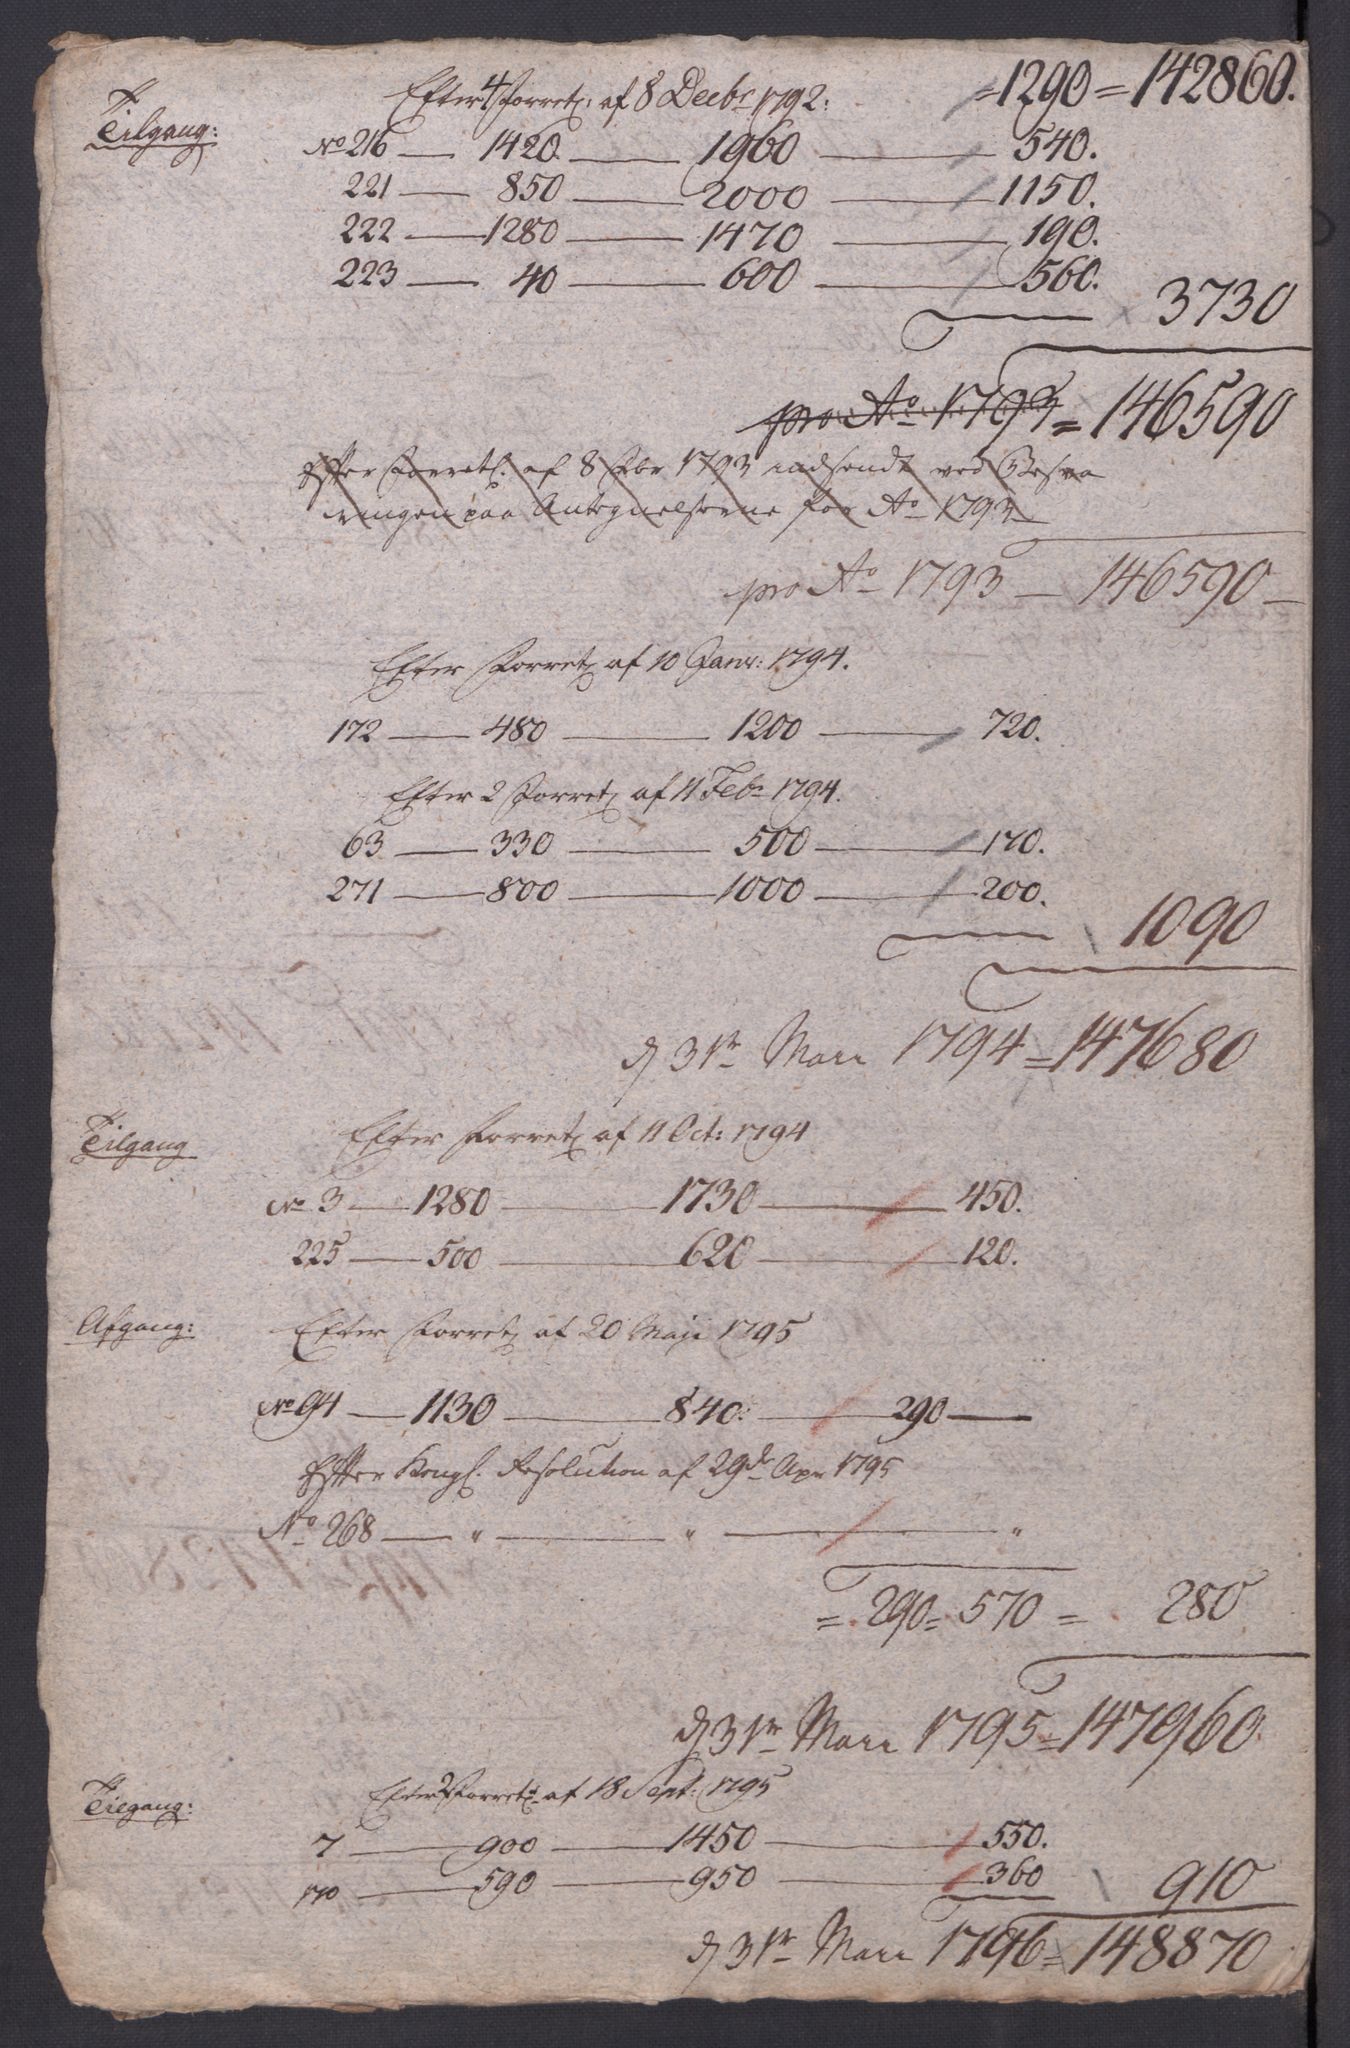 Tilgang:
Efter 4 Forretn: af 8 Decbr 1792: = 1290 = 142860.
No 216 — 1420. — 1960 — 540.
221 — 850 — 2000 — 1150.
222 — 1280 — 1470 — 190.
223 — 40 — 600 — 560.
3730
pro Ao 1793 = 146590
Efter Forretn. af 8 Fbr 1793 indsendt ved Besva
ringen paa Antegnelserne for Ao 1793
pro Ao 1793 — 146590 —
Efter Forretn af 10 Janr: 1794.
172 — 480 — 1200 — 720.
Efter 2 Forretn af 11 Febr 1794.
63 — 330 — 500 — 170.
271 — 800 — 1000 — 200.
1090
d 31te Marti 1794 = 147680
Tilgang
Efter Forretn af 11 Oct: 1794
No 3 — 1280 — 1730 — 450.
225 — 500 — 620 — 120.
Afgang:
Efter Forretn af 20 Maji 1795
No 94 — 1130 — 840. — 290 —
Efter Kongl. Resolution af 29de Apr 1795
No 268 — " — " — "
= 290 = 570 = 280
d 31te Marti 1795 = 147960.
Tilgang:
Efter 2 Forretn: af 18 Sept: 1795
7 — 900 — 1450 — 550.
170 — 590 — 950 — 360
910
d 31te Marti 1796 = 148870